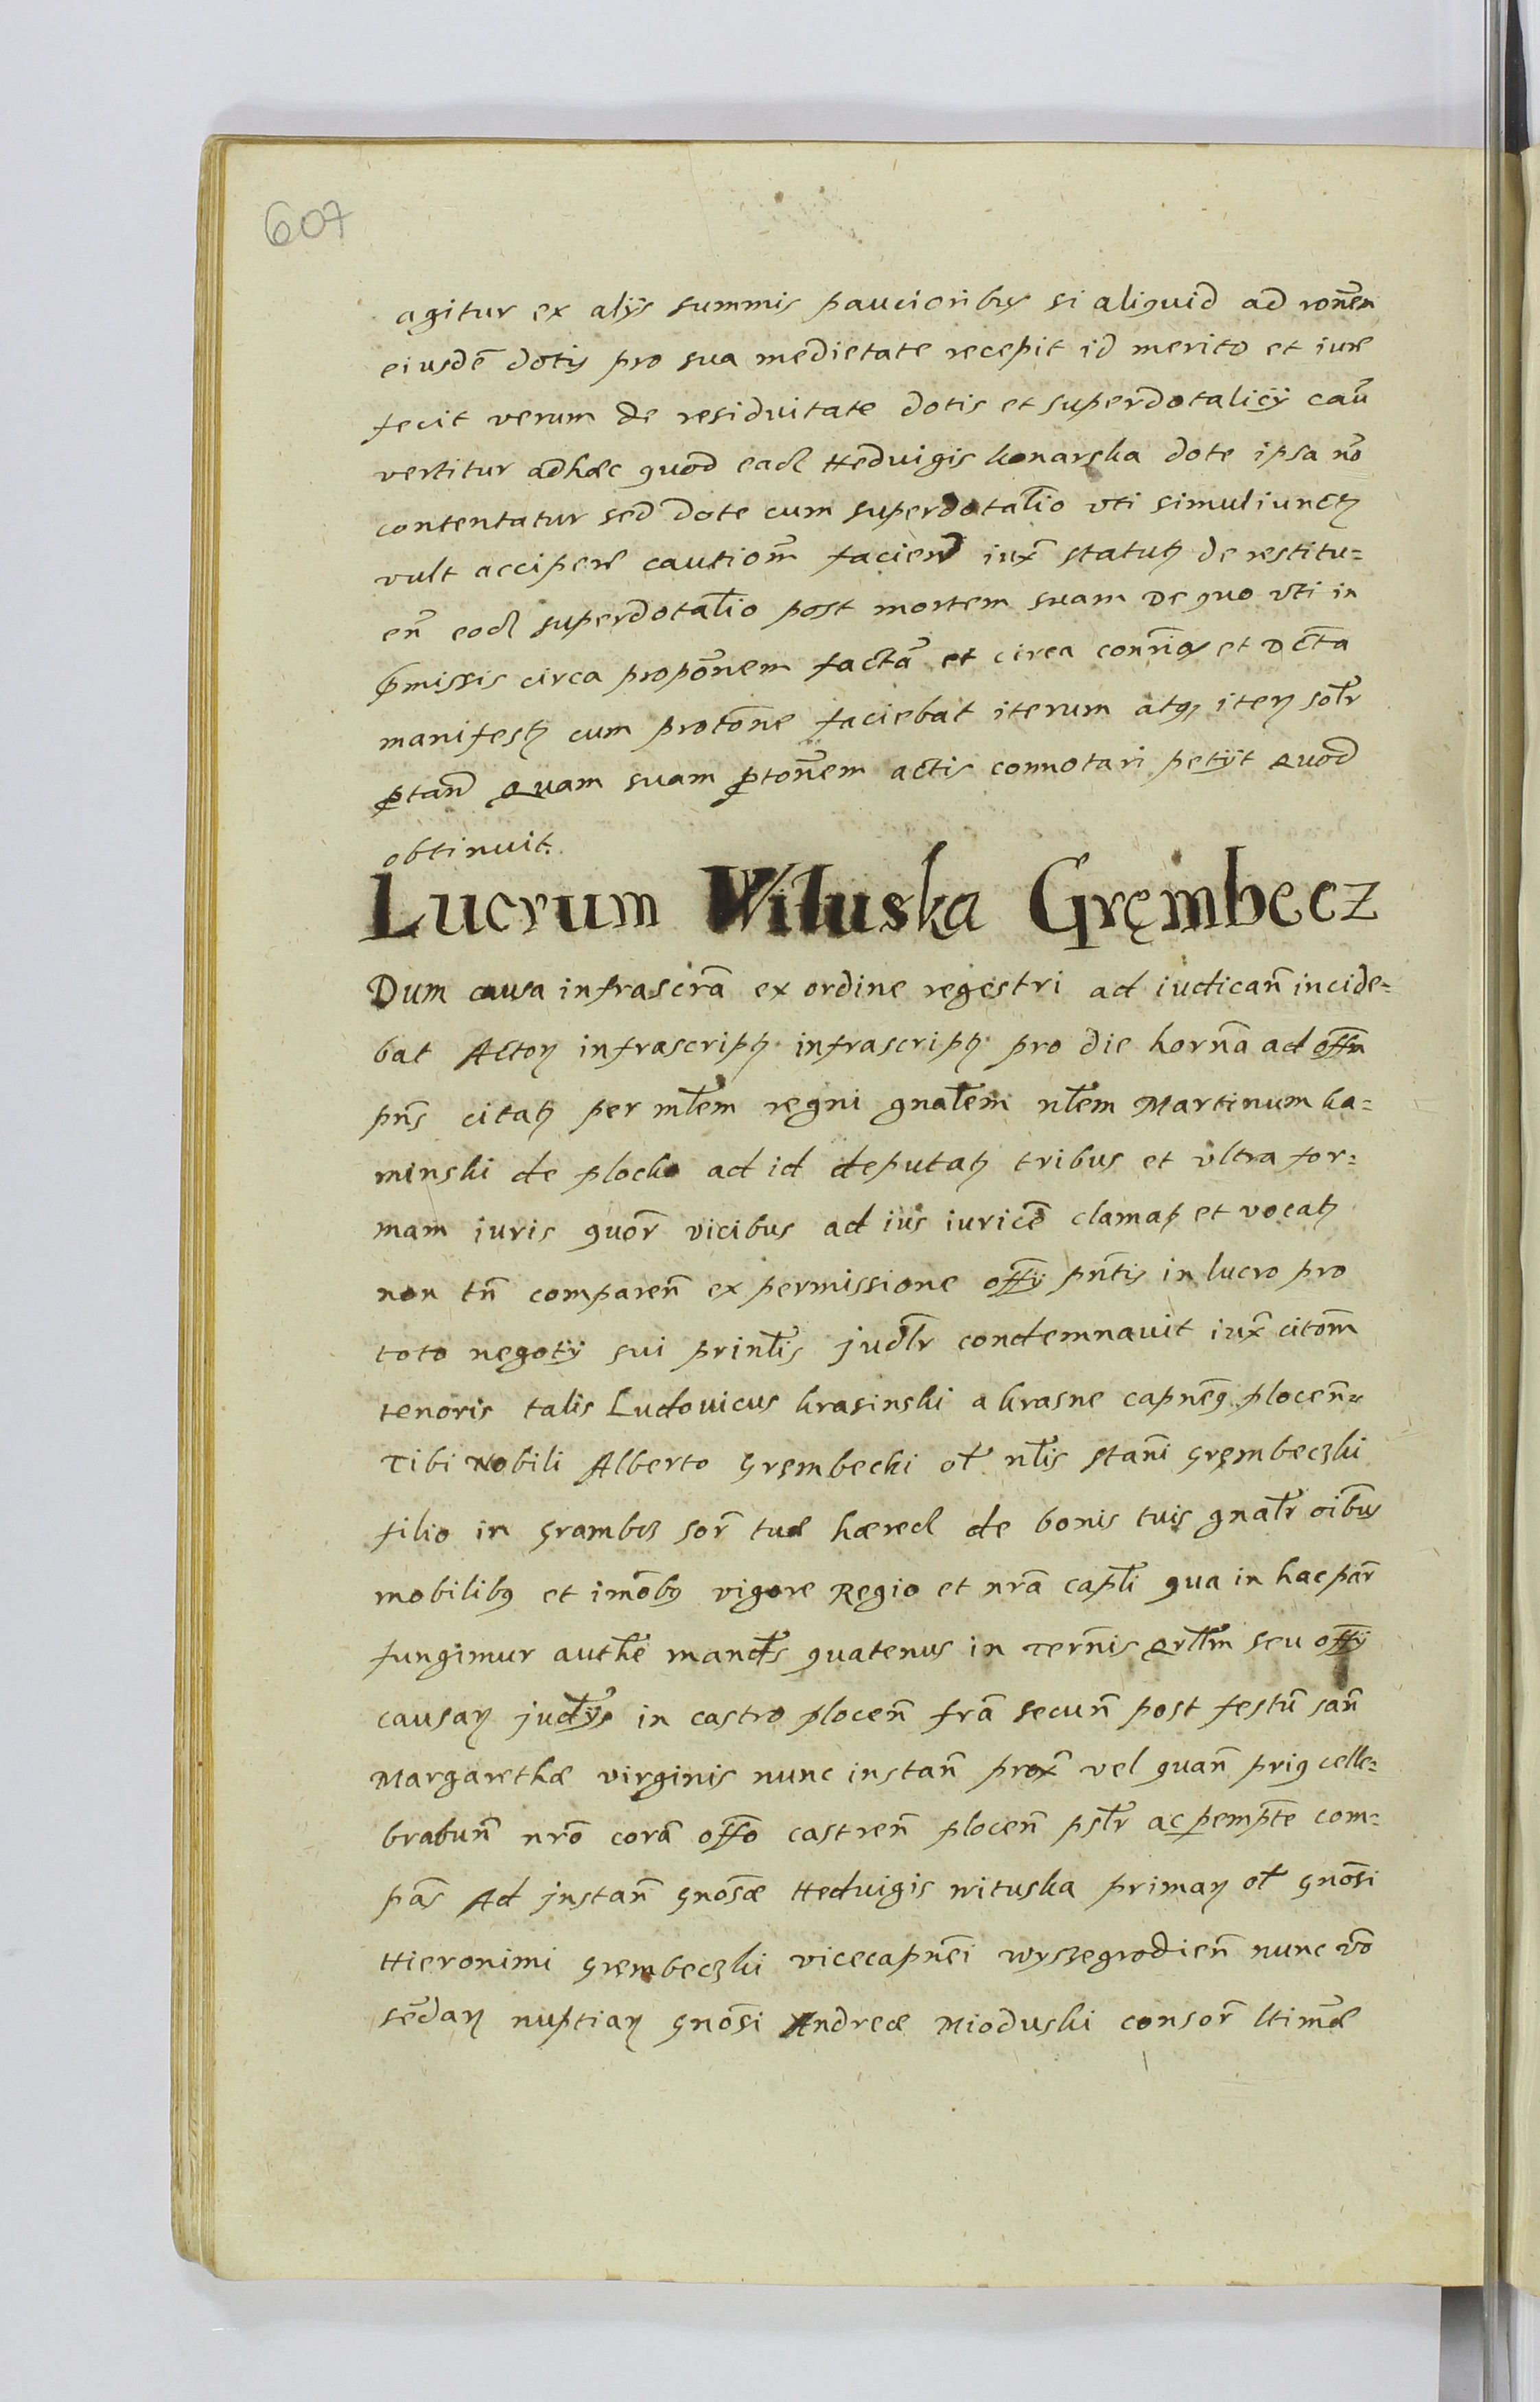 607
agitur ex alÿs summis paucioribus si aliquid ad ro͞nem
eiusdē dotis pro sua medietate recepit id merito et iure
fecit verum de residuitate dotis et superdotalicÿ cau͞
vertitur adhæc quod ead Hedvigis konarska dote ipsa no͞
contentatur sed dote cum superdotal͞io vti simul iunct
vult accipere cautio͞m faciend iux͞ statut de restitu=
en͞ eod superdotal͞io post mortem suam De quo vti in
p͞missis circa propo͞nem factā et circa et dct͞a
manifest cum proto͞ne faciebat iterum atq iter sol͞r
ptan͞d Quam suam pto͞nem actis connotari petÿt Quod
obtinuit.
Lucrum Wituska Gręmbecz
Dum causa infrascr͞a ex ordine regestri ad iudican͞ incide=
bat Actor infrascript infrascript pro die horn͞a ad off͞m
pn͞s citat per ml͞em regni gnal͞em nl͞em Martinum ka=
minski de plocko ad id deputat tribus et vltra for=
mam iuris quor͞ vicibus ad ius iuricē clamat et vocat
non tn͞ comparen͞ ex permissione off͞ÿ pn͞tis in lucro pro
toto negotÿ sui prinl͞is judl͞r condemnauit iux͞ cito͞m
tenoris talis Ludouicus krasinski a krasne capne͞q plocen͞=
Tibi Nobili Alberto Grembecki ol͞ nl͞is Stan͞i Gręmbeczki
filio in Grambcz sor͞ tuæ hæred de bonis tuis gnal͞r oib͞us
mobilibq et imo͞bq vigore Regio et nr͞a capl͞i qua in hac par͞
fungimur auth͞e mand͞s quatenus in Term͞is Qrl͞lm seu off͞ÿ
causar jud͞ÿs in castro plocen͞ fr͞a secun͞ post festū san͞
Margarethæ virginis nunc instan͞ prox͞ vel quan͞ priq celle=
brabun͞ nr͞o corā off͞o castren͞ plocen͞ psl͞r ac pempt͞e com=
pa͞s Ad jnstan͞ Gno͞sæ Hedvigis wituska primar ol͞ Gno͞si
Hieronimi Grembeczki vicecapne͞i wyszegrodien͞ nunc vo͞
se͞dar nuptiar Gno͞si Andreæ Mioduski consor͞ ltim͞æ